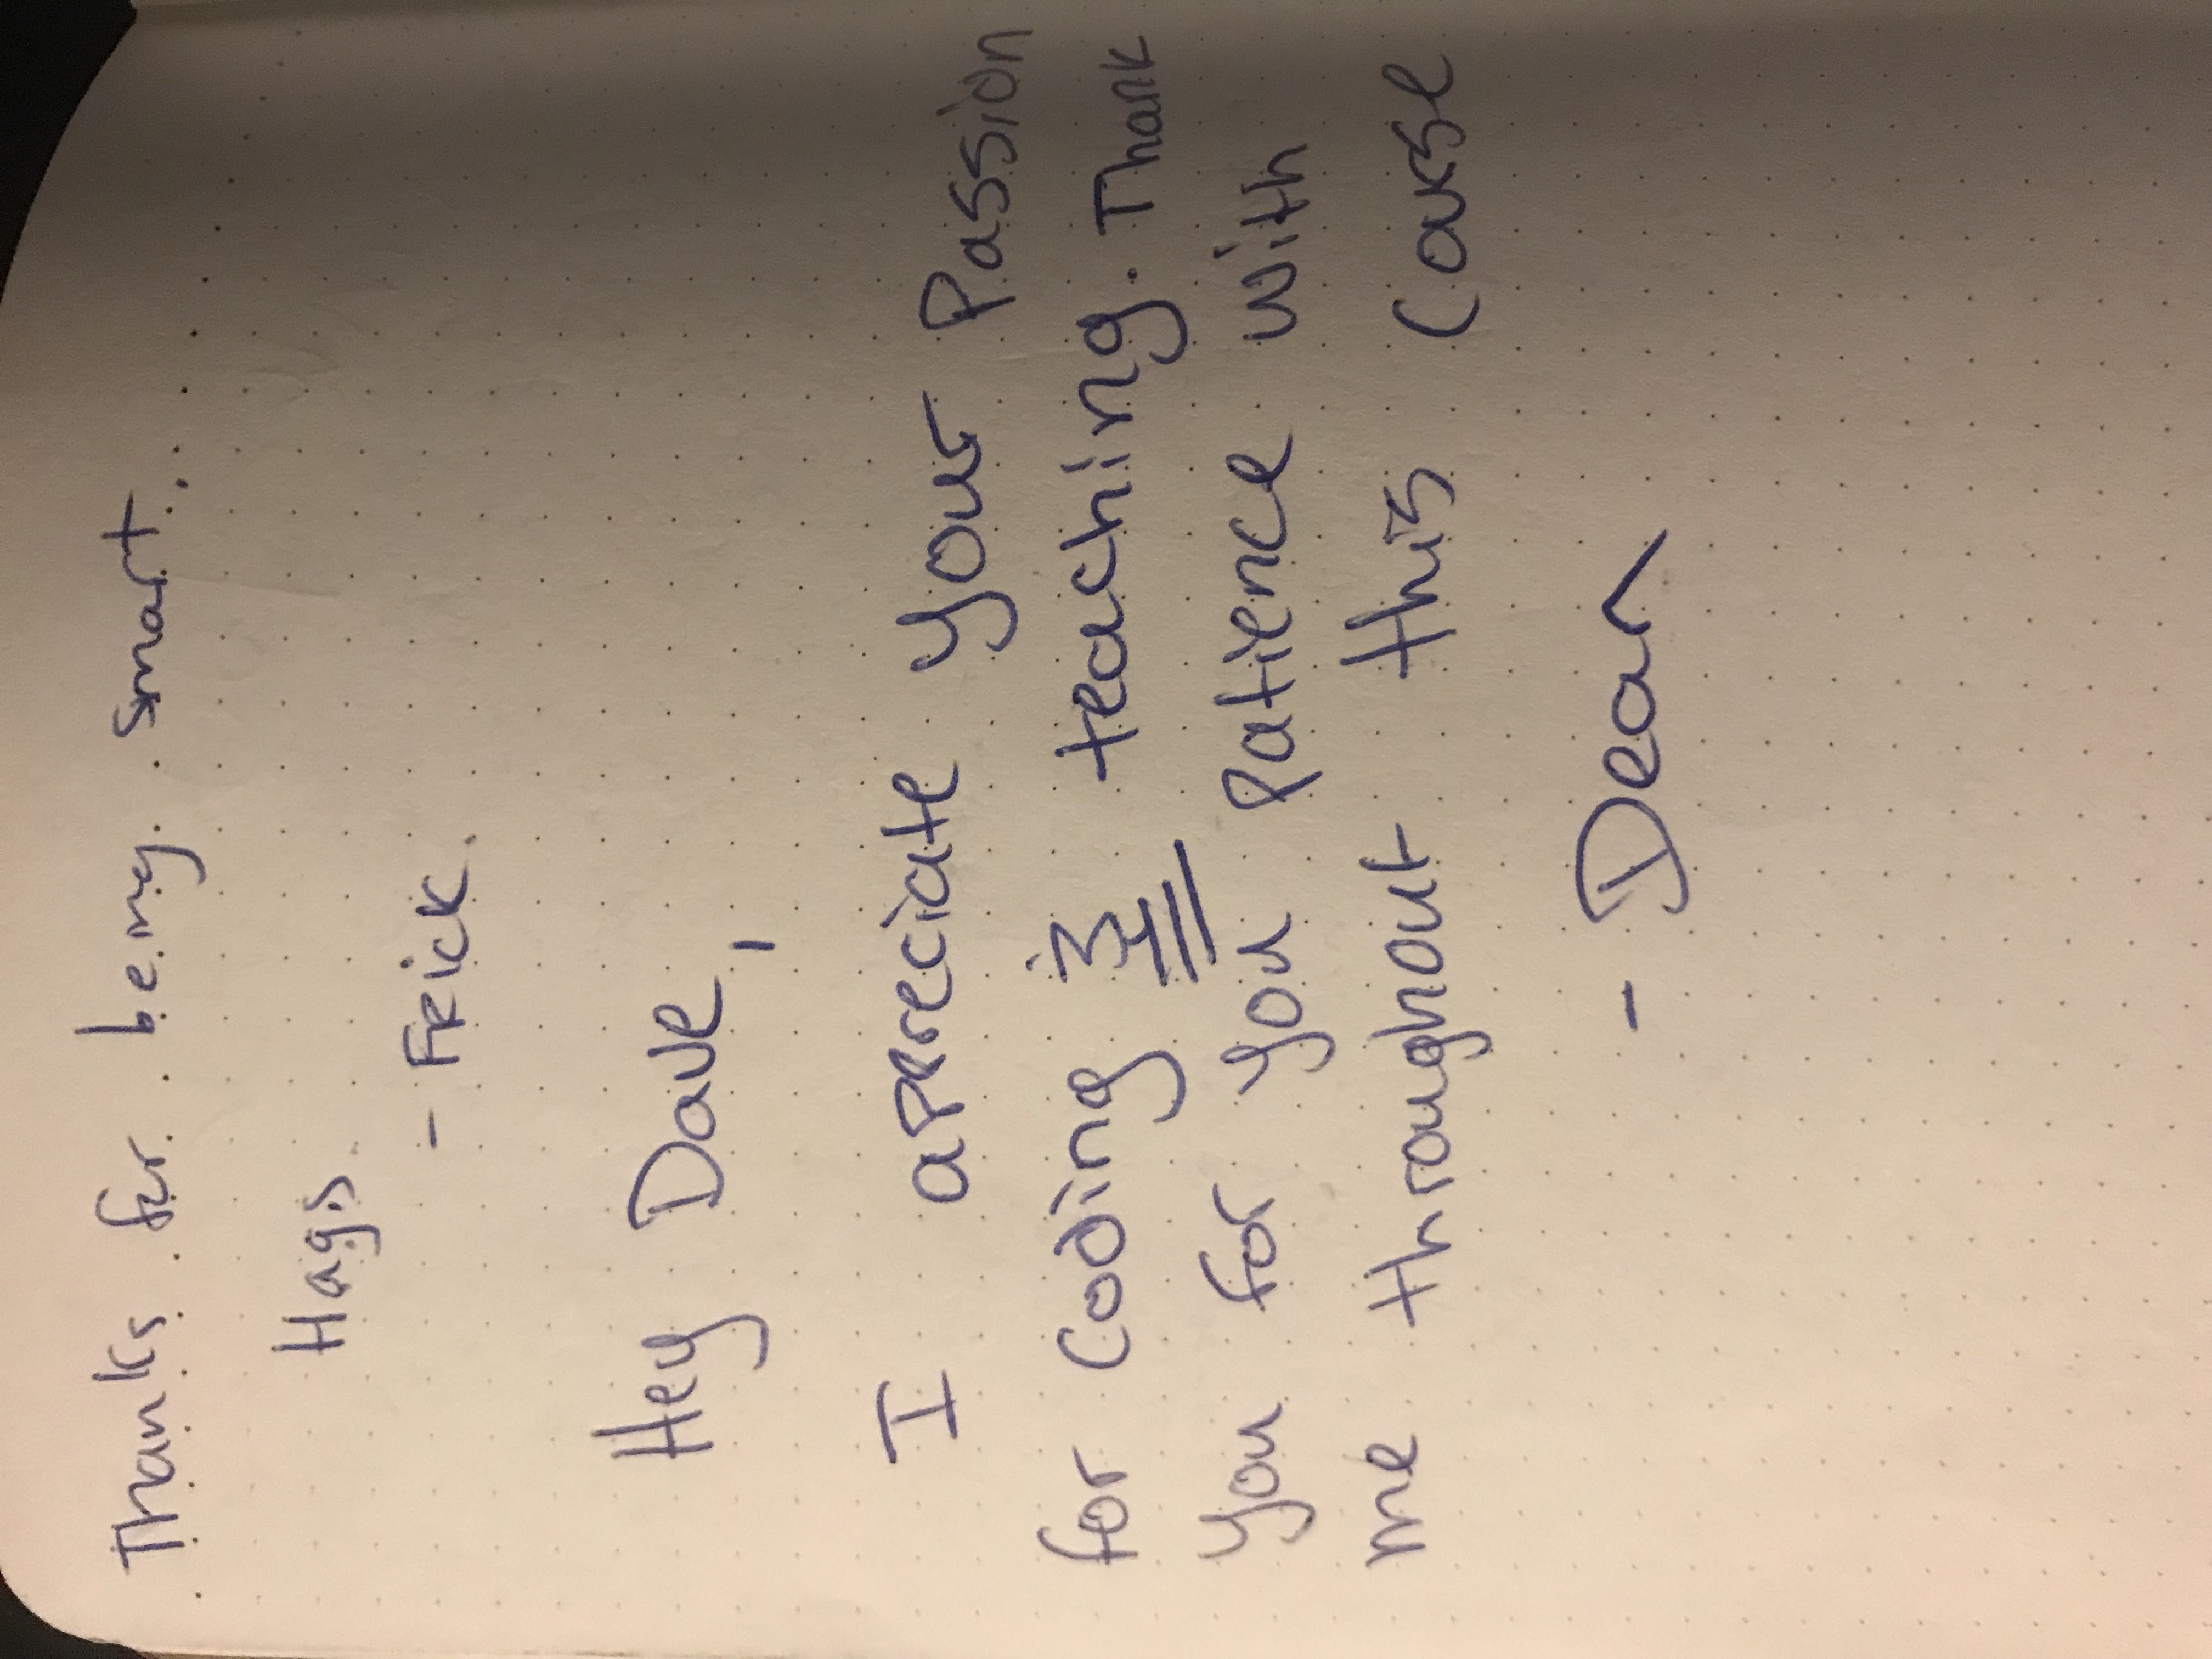 Thanks for being smart.
Hags
- Frick.
Hey Dave,
I appreciate your Passion
for Coding & teaching. Thank
you for you Patience with
me throughout this course
- Dean